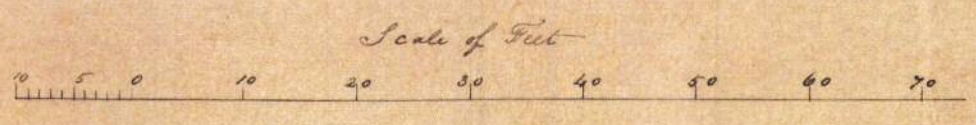 Scale of Feet
10 5 0 10 20 30 40 50 60 70